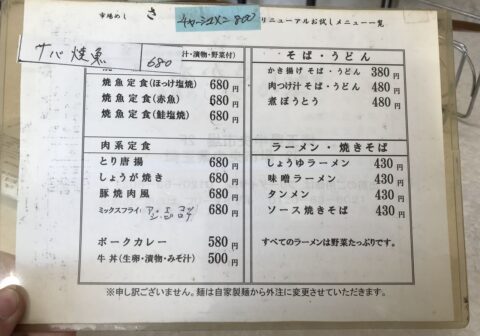 市場めし さ
チャーシュメン 800
リニューアルお試しメニュー一覧
サバ 焼魚 680
汁・漬物・野菜付)
焼魚定食(ほっけ塩焼) 680円
焼魚定食(赤魚) 680円
焼魚定食(鮭塩焼) 680円
肉系定食
とり唐揚 680円
しょうが焼き 680円
豚焼肉風 680円
ミックスフライ 680円
ポークカレー 580円
牛丼(生卵・漬物・みそ汁) 500円
そば・うどん
かき揚げ そば・うどん 380円
肉つけ汁 そば・うどん 480円
煮ぼうとう 480円
ラーメン・焼きそば
しょうゆラーメン 430円
味噌ラーメン 430円
タンメン 430円
ソース焼きそば 430円
すべてのラーメンは野菜たっぷりです。
※申し訳ございません。麺は自家製麺から外注に変更させていただきます。